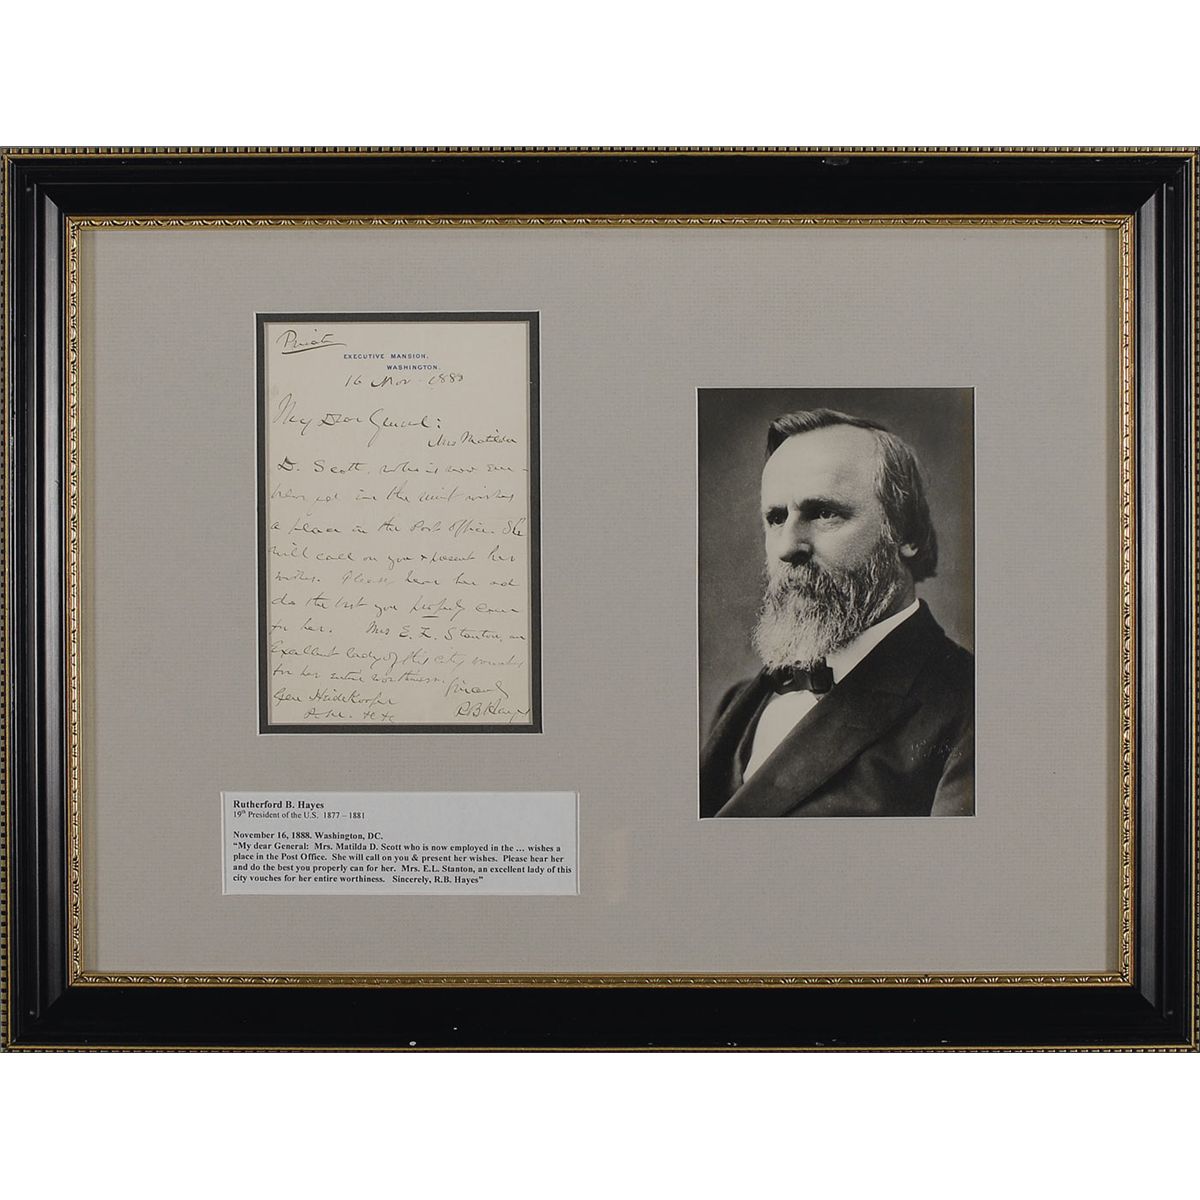 Private
EXECUTIVE MANSION.
WASHINGTON.
16 Nov 1880
My Dear General:
Mrs Matilda
D. Scott, who is now em-
ployed in the mint wishes
a place in the Post Office. She
will call on you & present her
wishes. Please hear her and
do the best you properly can
for her. Mrs E. L. Stanton, an
excellent lady of this city vouches
for her entire worthiness.
Sincerely
Gen Heidekoper
P.M. &c &c
R B Hayes
Rutherford B. Hayes
19th President of the U.S. 1877 – 1881
November 16, 1888. Washington, DC.
“My dear General: Mrs. Matilda D. Scott who is now employed in the … wishes a
place in the Post Office. She will call on you & present her wishes. Please hear her
and do the best you properly can for her. Mrs. E.L. Stanton, an excellent lady of this
city vouches for her entire worthiness. Sincerely, R.B. Hayes”